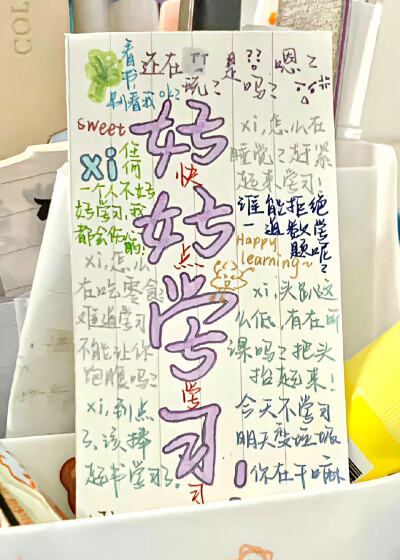 COL
看书
还在
玩？
是吗？
??
嗯？
别看我ok?
sweet
xi
任何
一个人不好
好学习，我
都会伤心的！
xi,怎么
在吃零食
难道学习
不能让你
饱腹吗？
xi,到点
了，该捧
起书学习了。
好好学习！
快点学习
xi,怎么在
睡觉？赶紧
起来学习！
谁能拒绝
一道数学
题呢？
Happy
learning~
xi,头趴这
么低，有在听
课吗？把头
抬起来！
今天不学习
明天变垃圾
你在干嘛